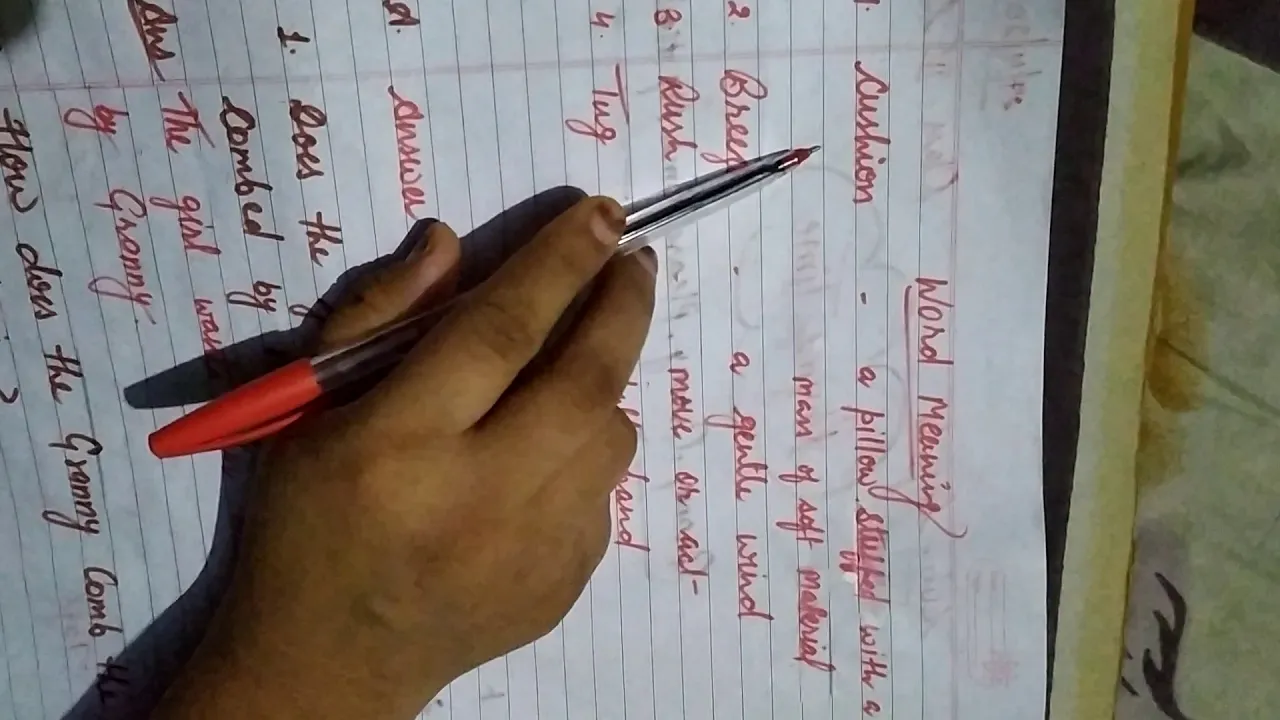 Word Meaning
1. Cushion - a pillow stuffed with a
mass of soft material
2. Breez - a gentle wind
3. Rush move or act-
4. Tug hand
d. Answer
1. Does the
Combed by
Ans- The girl was
by Granny-
How does the Granny Comb the
?